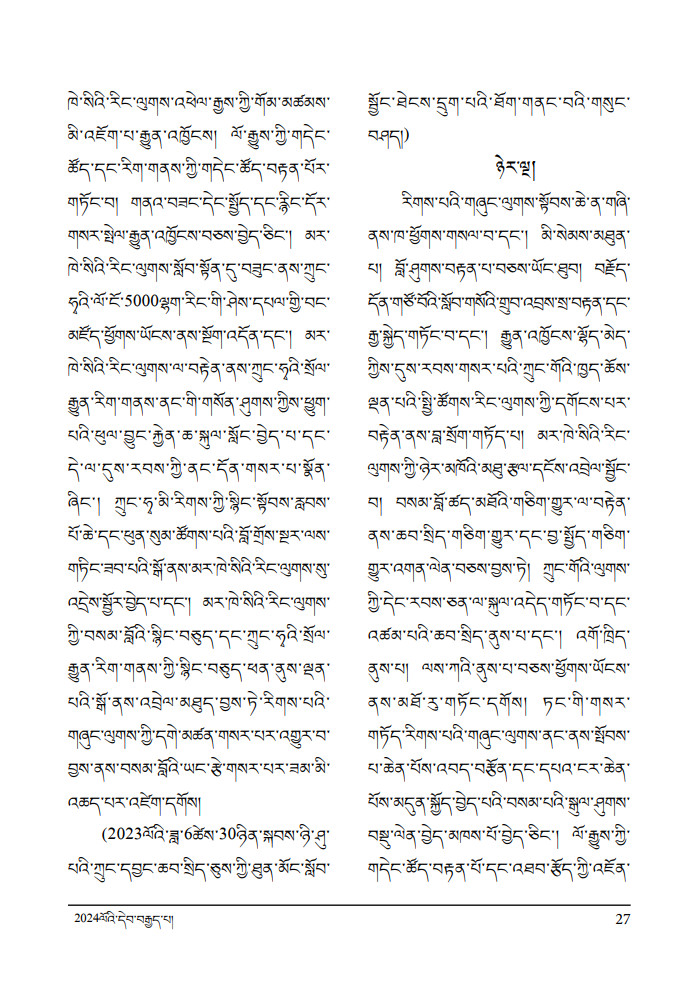 ཁེ་སིའི་རིང་ལུགས་འཕེལ་རྒྱས་ཀྱི་གོམ་མཚམས་
མི་འཇོག་པ་རྒྱུན་འཁྱོངས། ལོ་རྒྱུས་ཀྱི་གདེང་
ཚོད་དང་རིག་གནས་ཀྱི་གདེང་ཚོད་བརྟན་པོར་
གཏོང་བ། གནའ་བཟང་དེང་སྤྱོད་དང་རྙིང་དོར་
གསར་སྤེལ་རྒྱུན་འཁྱོངས་བཅས་བྱེད་ཅིང་། མར་
ཁེ་སིའི་རིང་ལུགས་སློབ་སྟོན་དུ་བཟུང་ནས་ཀྲུང་
ཧྭའི་ལོ་ངོ་5000ལྷག་རིང་གི་ཤེས་དཔལ་གྱི་བང་
མཛོད་ཕྱོགས་ཡོངས་ནས་སྔོག་འདོན་དང་། མར་
ཁེ་སིའི་རིང་ལུགས་ལ་བརྟེན་ནས་ཀྲུང་ཧྭའི་སྲོལ་
རྒྱུན་རིག་གནས་ནང་གི་གསོན་ཤུགས་ཀྱིས་ཕྱུག་
པའི་ཕུལ་བྱུང་རྐྱེན་ཆ་སྐུལ་སློང་བྱེད་པ་དང་
དེ་ལ་དུས་རབས་ཀྱི་ནང་དོན་གསར་པ་སྣོན་
ཞིང་། ཀྲུང་ཧྭ་མི་རིགས་ཀྱི་སྙིང་སྟོབས་རླབས་
པོ་ཆེ་དང་ཕུན་སུམ་ཚོགས་པའི་བློ་གྲོས་སྔར་ལས་
གཏིང་ཟབ་པའི་སྒོ་ནས་མར་ཁེ་སིའི་རིང་ལུགས་སུ་
འདྲེས་སྦྱོར་བྱེད་པ་དང་། མར་ཁེ་སིའི་རིང་ལུགས་
ཀྱི་བསམ་བློའི་སྙིང་བཅུད་དང་ཀྲུང་ཧྭའི་སྲོལ་
རྒྱུན་རིག་གནས་ཀྱི་སྙིང་བཅུད་ཕན་ནུས་ལྡན་
པའི་སྒོ་ནས་འབྲེལ་མཐུད་བྱས་ཏེ་རིགས་པའི་
གཞུང་ལུགས་ཀྱི་དགེ་མཚན་གསར་པར་འགྱུར་བ་
བྱས་ནས་བསམ་བློའི་ཡང་རྩེ་གསར་པར་ཟམ་མི་
འཆད་པར་འཛེག་དགོས།
(2023ལོའི་ཟླ་6ཚེས་30ཉིན་སྐབས་ཉི་ཤུ་
པའི་ཀྲུང་དབྱང་ཆབ་སྲིད་ཅུས་ཀྱི་ཐུན་མོང་སློབ་
སྦྱོང་ཐེངས་དྲུག་པའི་ཐོག་གནང་བའི་གསུང་
བཤད།)
ཉེར་ལྔ།
རིགས་པའི་གཞུང་ལུགས་སྟོབས་ཆེ་ན་གཞི་
ནས་ཁ་ཕྱོགས་གསལ་བ་དང་། མི་སེམས་མཐུན་
པ། བློ་ཤུགས་བརྟན་པ་བཅས་ཡོང་ཐུབ། བརྗོད་
དོན་གཙོ་བོའི་སློབ་གསོའི་གྲུབ་འབྲས་སྲ་བརྟན་དང་
རྒྱ་སྐྱེད་གཏོང་བ་དང་། རྒྱུན་འཁྱོངས་ལྷོད་མེད་
ཀྱིས་དུས་རབས་གསར་པའི་ཀྲུང་གོའི་ཁྱད་ཆོས་
ལྡན་པའི་སྤྱི་ཚོགས་རིང་ལུགས་ཀྱི་དགོངས་པར་
བརྟེན་ནས་བླ་སྲོག་གཏོད་པ། མར་ཁེ་སིའི་རིང་
ལུགས་ཀྱི་ཉེར་མཁོའི་མཐུ་རྩལ་དངོས་འབྲེལ་སྦྱོང་
བ། བསམ་བློ་ཚད་མཐོའི་གཅིག་གྱུར་ལ་བརྟེན་
ནས་ཆབ་སྲིད་གཅིག་གྱུར་དང་བྱ་སྤྱོད་གཅིག་
གྱུར་འགན་ལེན་བཅས་བྱས་ཏེ། ཀྲུང་གོའི་ལུགས་
ཀྱི་དེང་རབས་ཅན་ལ་སྐུལ་འདེད་གཏོང་བ་དང་
འཚམ་པའི་ཆབ་སྲིད་ནུས་པ་དང་། འགོ་ཁྲིད་
ནུས་པ། ལས་ཀའི་ནུས་པ་བཅས་ཕྱོགས་ཡོངས་
ནས་མཐོ་རུ་གཏོང་དགོས། ཏང་གི་གསར་
གཏོད་རིགས་པའི་གཞུང་ལུགས་ནང་ནས་སྤོབས་
པ་ཆེན་པོས་འབད་བརྩོན་དང་དཔའ་ངར་ཆེན་
པོས་མདུན་སྐྱོད་བྱེད་པའི་བསམ་པའི་སྒུལ་ཤུགས་
བསྡུ་ལེན་བྱེད་མཁས་པོ་བྱེད་ཅིང་། ལོ་རྒྱུས་ཀྱི་
གདེང་ཚོད་བརྟན་པོ་དང་འཐབ་རྩོད་ཀྱི་འཇོན་
2024ལོའི་དེབ་བརྒྱད་པ།
27